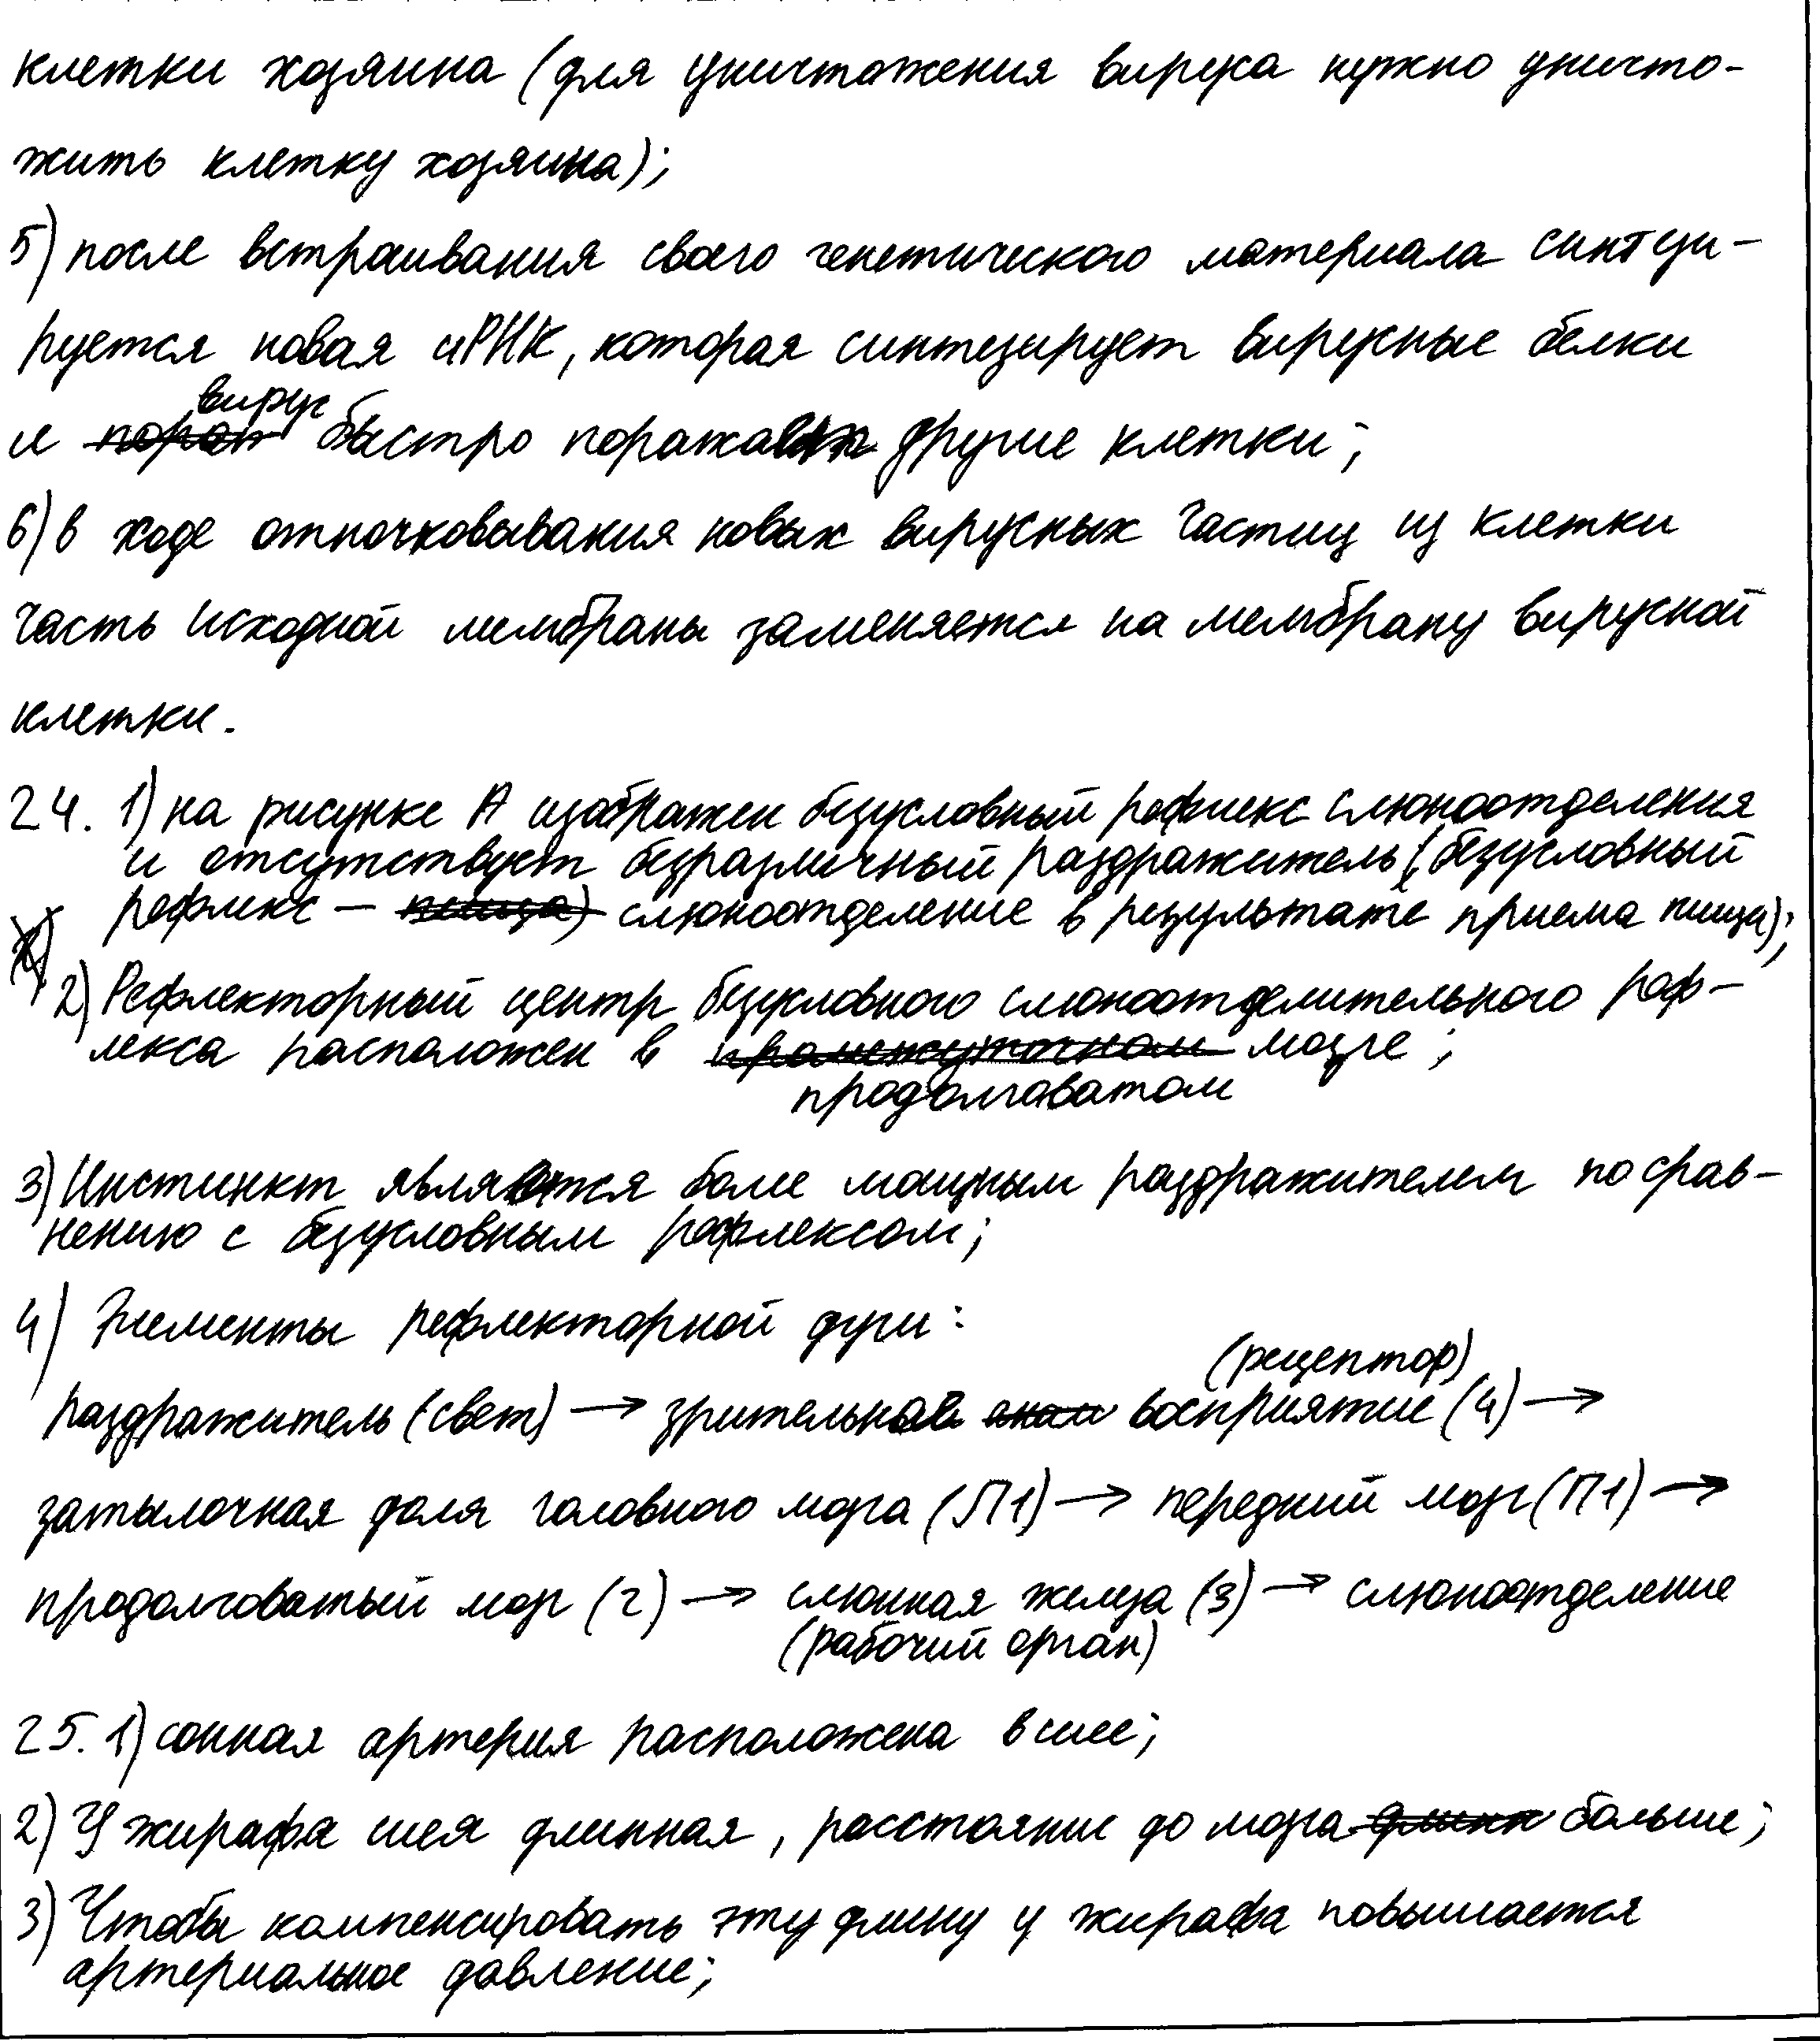 клетки хозяина (для уничтожения вируса нужно уничто-
жить клетку хозяина);
5) после встраивания своего генетического материала синтези-
руется новая иРНК, которая синтезирует вирусные белки
вирус
и быстро поражает другие клетки;
6) в ходе отпочковывания новых вирусных частиц из клетки
часть исходной мембраны заменяется на мембрану вирусной
клетки.
24. 1) на рисунке А изображен безусловный рефлекс слюноотделения
и отсутствует безразличный раздражитель (безусловный
рефлекс — слюноотделение в результате приема пищи);
2) Рефлекторный центр безусловного слюноотделительного реф-
лекса расположен в мозге;
продолговатом
3) Инстинкт является более мощным раздражителем по срав-
нению с безусловным рефлексом;
4) Элементы рефлекторной дуги:
(рецептор)
раздражитель (свет) → зрительное восприятие (4) →
затылочная доля головного мозга (П1) → передний мозг (П1) →
продолговатый мозг (2) → слюнная железа (3) → слюноотделение
(рабочий орган)
25. 1) сонная артерия расположена в шее;
2) У жирафа шея длинная, расстояние до мозга больше;
3) Чтобы компенсировать эту длину у жирафа повышается
артериальное давление;